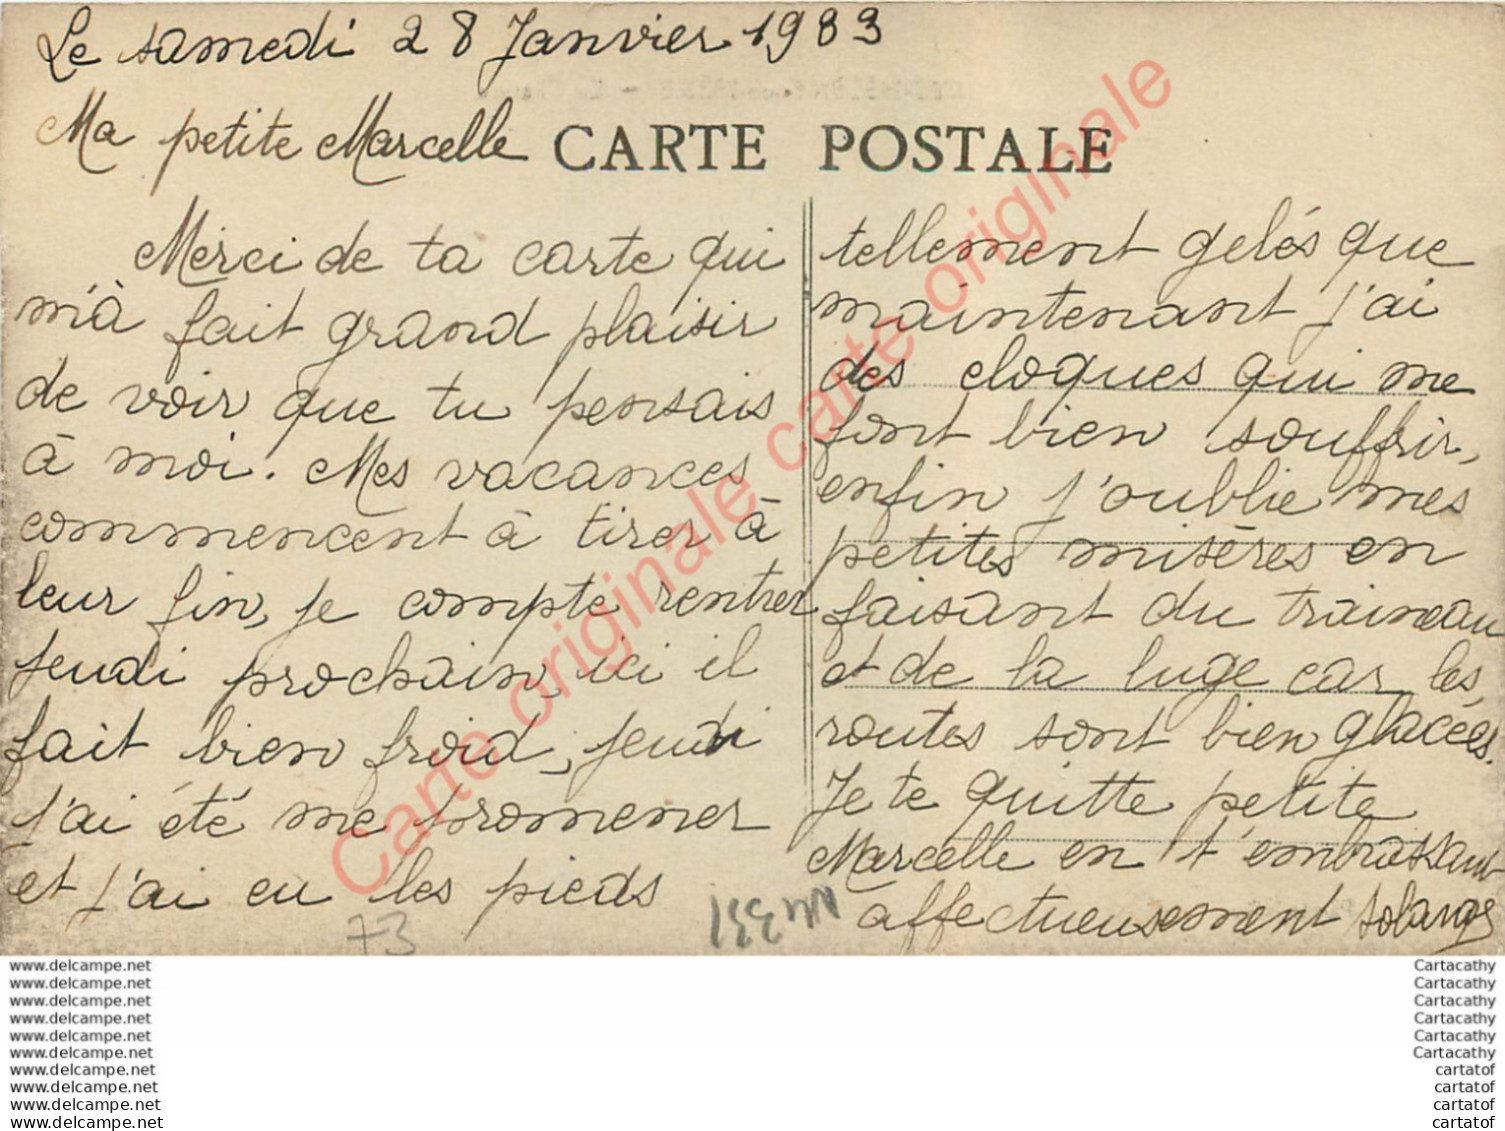 Le samedi 28 Janvier 1933
Ma petite Marcelle
CARTE POSTALE
Merci de ta carte qui
m'à fait grand plaisir
de voir que tu pensais
à moi. Mes vacances
commencent à tirer à
leur fin, je compte rentrer
jeudi prochain, ici il
fait bien froid, jeudi
j'ai été me promener
et j'ai eu les pieds
tellement gelés que
maintenant j'ai
des cloques qui me
font bien souffrir,
enfin j'oublie mes
petites misères en
faisant du traineau
et de la luge car les
routes sont bien glacées.
Je te quitte petite
Marcelle en t'embrassant
affectueusement Solange
73
Carte originale carte originale
www.delcampe.net
www.delcampe.net
www.delcampe.net
www.delcampe.net
www.delcampe.net
www.delcampe.net
www.delcampe.net
www.delcampe.net
www.delcampe.net
www.delcampe.net
Cartacathy
Cartacathy
Cartacathy
Cartacathy
Cartacathy
Cartacathy
cartatof
cartatof
cartatof
cartatof